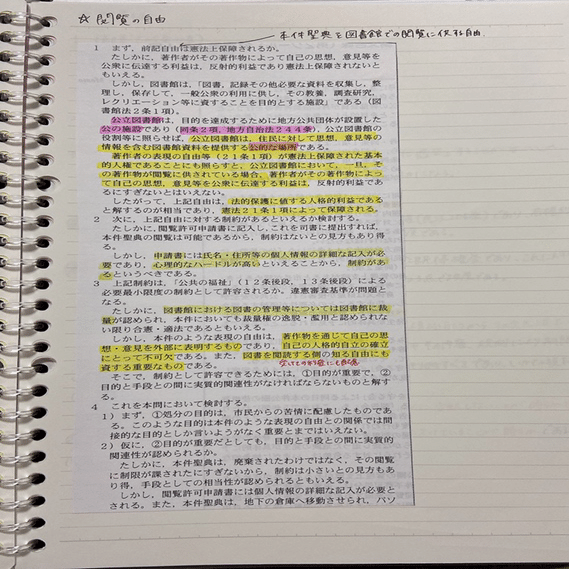 ☆ 閲覧の自由
本件聖典を図書館での閲覧に供する自由
1 まず，前記自由は憲法上保障されるか。
たしかに，著作者がその著作物によって自己の思想，意見等を
公衆に伝達する利益は，反射的利益であり憲法上保障されないと
もいえる。
しかし，図書館は，「図書，記録その他必要な資料を収集し，整
理し，保存して，一般公衆の利用に供し，その教養，調査研究，
レクリエーション等に資することを目的とする施設」である（図
書館法2条1項）。
公立図書館は，目的を達成するために地方公共団体が設置した
公の施設であり（同条2項，地方自治法244条），公立図書館の
役割等に照らせば，公立図書館は，住民に対して思想，意見等の
情報を含む図書館資料を提供する公的な場所である。
著作者の表現の自由等（21条1項）が憲法上保障された基本
的人権であることにも照らすと，公立図書館において，一旦，そ
の著作物が閲覧に供されている場合，著作者がその著作物によっ
て自己の思想，意見等を公衆に伝達する利益は，反射的利益であ
るにすぎないとはいえない。
したがって，上記自由は，法的保護に値する人格的利益である
と解するのが相当であり，憲法21条1項によって保障される。
2 次に，上記自由に対する制約があるといえるか検討する。
たしかに，閲覧許可申請書に記入し，これを司書に提出すれば，
本件聖典の閲覧は可能であるから，制約はないとの見方もあり得
る。
しかし，申請書には氏名・住所等の個人情報の詳細な記入が必
要であり，心理的なハードルが高いといえることから，制約があ
るというべきである。
3 上記制約は，「公共の福祉」（12条後段，13条後段）による
必要最小限度の制約として許容されるか。違憲審査基準が問題と
なる。
たしかに，図書館における図書の管理等については図書館に裁
量が認められ，本件においても裁量権の逸脱・濫用と認められな
い限り合憲・適法であるともいえる。
しかし，本件のような表現の自由は，著作物を通じて自己の思
想・意見を外部に表明するものであり，自己の人格的自立の確立
にとって不可欠である。また，図書を閲読する側の知る自由にも
資する重要なものである。
そこで，制約として許容できるためには，①目的が重要で，②
目的と手段との間に実質的関連性がなければならないものと解す
る。
4 これを本問において検討する。
1）まず，①処分の目的は，市民からの苦情に配慮したものであ
る。このような目的は本件のような表現の自由との関係では間
接的な目的としか言いようがなく重要とまではいえない。
2）仮に，②目的が重要だとしても，目的と手段との間に実質的
関連性が認められるか。
たしかに，本件聖典は，廃棄されたわけではなく，その閲覧
に制限が課されたにすぎないから，制約は小さいとの見方もあ
り得，手段としての相当性が認められるともいえる。
しかし，閲覧許可申請書には個人情報の詳細な記入が必要と
される。また，本件聖典は，地下の倉庫へ移動させられ，パソ